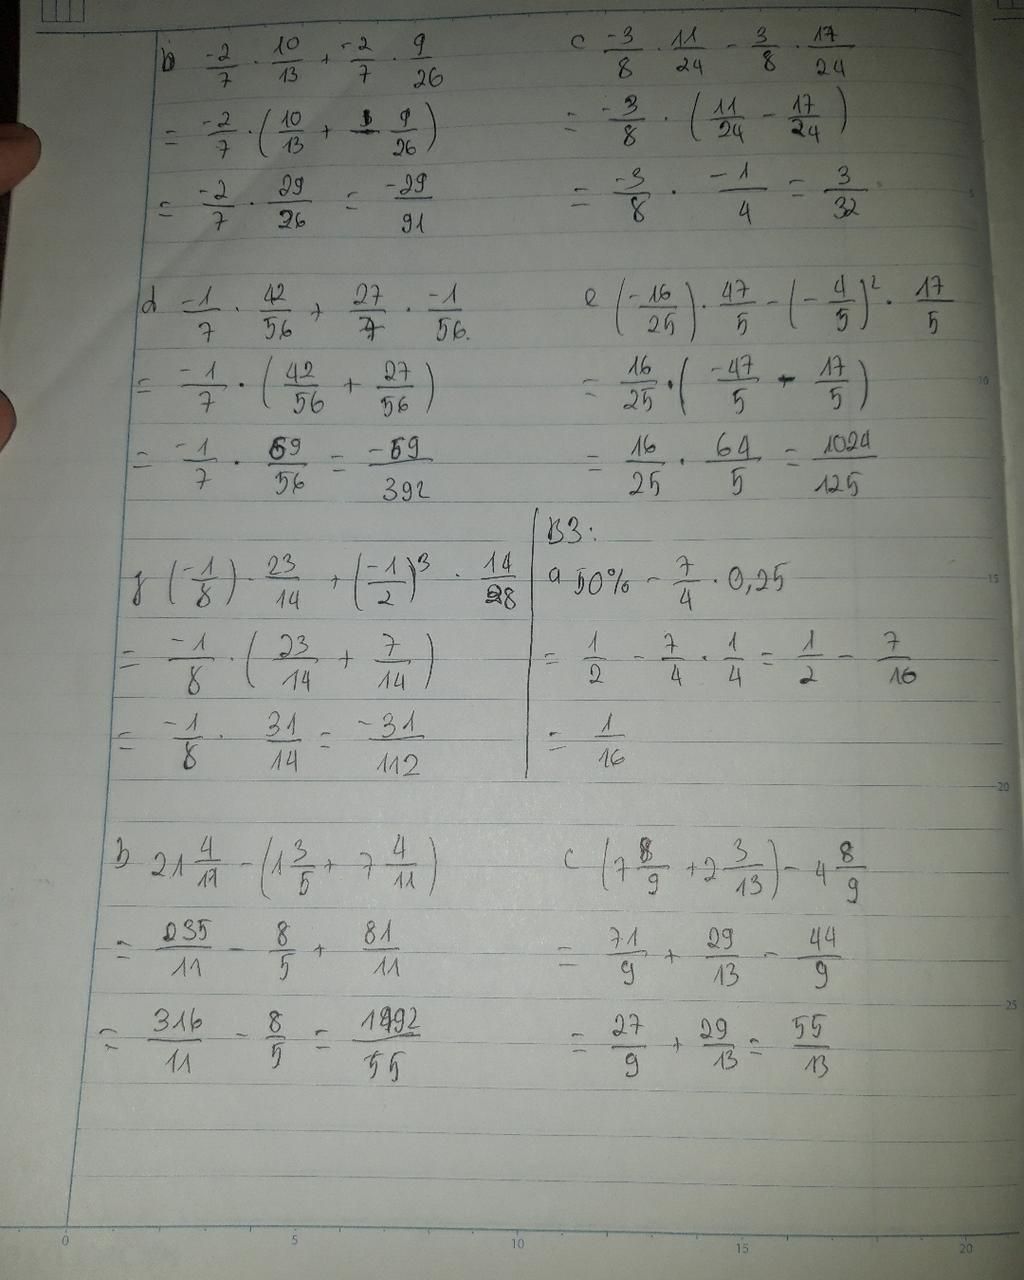 b -2/7 · 10/13 + -2/7 · 9/26
= -2/7 · (10/13 + 9/26)
= -2/7 · 29/26 = -29/91
c -3/8 · 11/24 - 3/8 · 17/24
= -3/8 · (11/24 - 17/24)
= -3/8 · -1/4 = 3/32
d -1/7 · 42/56 + 27/7 · -1/56
= -1/7 · (42/56 + 27/56)
= -1/7 · 69/56 = -69/392
e (-16/25) · 47/5 - (-4/5)² · 17/5
= 16/25 · (-47/5 - 17/5)
= 16/25 · 64/5 = 1024/125
g (-1/8) · 23/14 + (-1/2)³ · 14/28
= -1/8 · (23/14 + 7/14)
= -1/8 · 31/14 = -31/112
B3:
a 50% - 7/4 · 0,25
= 1/2 - 7/4 · 1/4 = 1/2 - 7/16
= 1/16
b 21 4/11 - (1 3/5 + 7 4/11)
= 235/11 - 8/5 + 81/11
= 316/11 - 8/5 = 1492/55
c (7 8/9 + 2 3/13) - 4 8/9
= 71/9 + 29/13 - 44/9
= 27/9 + 29/13 = 55/13
5
10
15
20
25
0 5 10 15 20